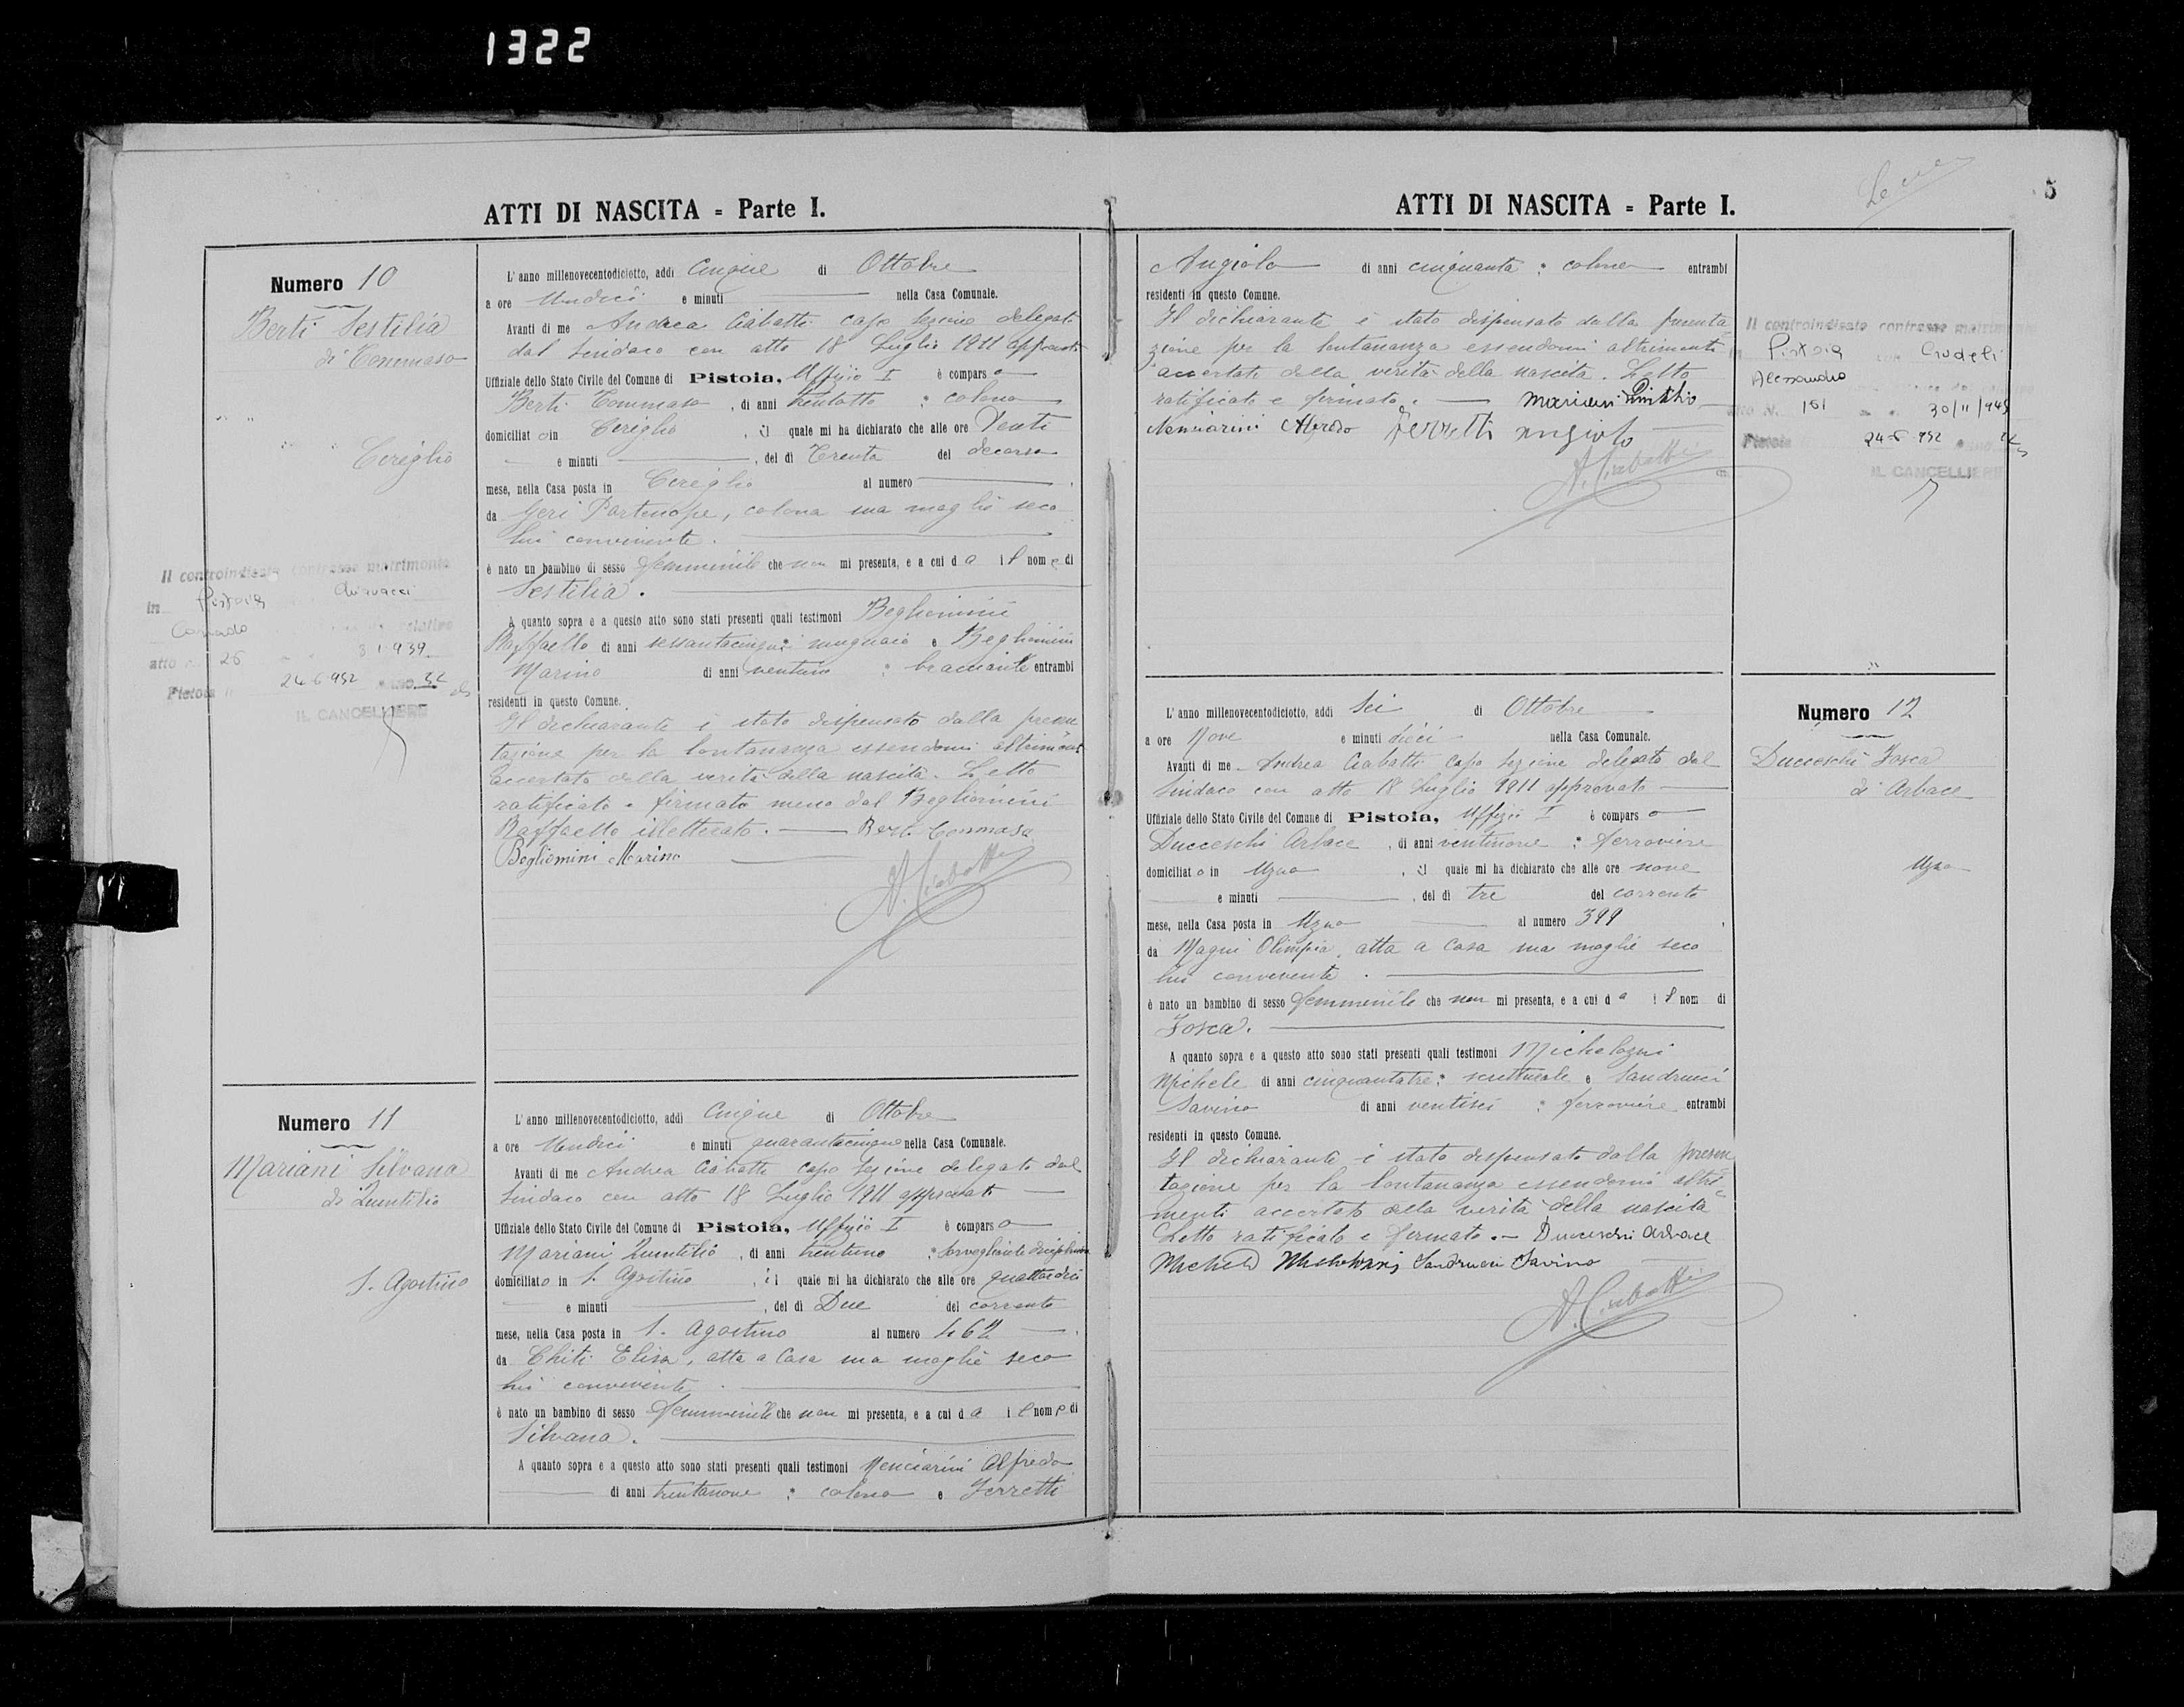 1322
5
ATTI DI NASCITA = Parte I.
Numero 10
Berti Sestilia
di Tommaso
Cireglio
Il controindicato contrasse matrimonio
in Pistoia Chiavacci
Corrado relativo
atto n. 26 8 1 939
Pistoia li 24 6 952
IL CANCELLIERE
L'anno millenovecentodiciotto, addì Cinque di Ottobre
a ore Undici e minuti nella Casa Comunale.
Avanti di me Andrea Ciabatti capo sezione delegato
dal Sindaco con atto 18 Luglio 1911 approvato
Uffiziale dello Stato Civile del Comune di Pistoia, Uffizio I è comparso
Berti Tommaso, di anni trentotto ; colono
domiciliato in Cireglio, il quale mi ha dichiarato che alle ore Venti
e minuti , del dì Trenta del decorso
mese, nella Casa posta in Cireglio al numero .
da Geri Partenope, colona sua moglie seco
lui convivente.
è nato un bambino di sesso femminile che non mi presenta, e a cui dà il nome di
Sestilia.
A quanto sopra e a questo atto sono stati presenti quali testimoni Begliomini
Raffaello di anni sessantacinque: mugnaio e Begliomini
Marino di anni ventuno : bracciante entrambi
residenti in questo Comune.
Il dichiarante è stato dispensato dalla presen
tazione per la lontananza essendomi altriment
accertato della verità della nascita. Letto
ratificato e firmato meno dal Begliomini
Raffaello illetterato. — Berti Tommaso
Begliomini Marino
A. Ciabatti
Numero 11
Mariani Silvana
di Quintilio
S. Agostino
L'anno millenovecentodiciotto, addì Cinque di Ottobre
a ore Undici e minuti quarantacinque nella Casa Comunale.
Avanti di me Andrea Ciabatti capo sezione delegato dal
Sindaco con atto 18 Luglio 1911 approvato
Uffiziale dello Stato Civile del Comune di Pistoia, Uffizio I è comparso
Mariani Quintilio, di anni trentuno ; sorvegliante
domiciliato in S. Agostino, il quale mi ha dichiarato che alle ore quattordici
e minuti , del dì Due del corrente
mese, nella Casa posta in S. Agostino al numero 462.
da Chiti Elisa, atta a Casa sua moglie seco
lui convivente.
è nato un bambino di sesso femminile che non mi presenta, e a cui dà il nome di
Silvana.
A quanto sopra e a questo atto sono stati presenti quali testimoni Menciarini Alfredo
di anni trentanove ; colono e Ferretti
ATTI DI NASCITA = Parte I.
Angiolo di anni cinquanta : colono entrambi
residenti in questo Comune.
Il dichiarante è stato dispensato dalla presenta
zione per la lontananza essendomi altrimenti
accertato della verità della nascita. Letto
ratificato e firmato. — Mariani Quintilio
Menciarini Alfredo Ferretti Angiolo
A. Ciabatti
Il controindicato contrasse matrimonio
Pistoia con Crudeli
Alessandro
atto N. 101 30/11/945
Pistoia 24-6 952
IL CANCELLIERE
Numero 12
Ducceschi Fosca
di Arbace
Uzzo
L'anno millenovecentodiciotto, addì Sei di Ottobre
a ore Nove e minuti dieci nella Casa Comunale.
Avanti di me Andrea Ciabatti capo sezione delegato dal
Sindaco con atto 18 Luglio 1911 approvato
Uffiziale dello Stato Civile del Comune di Pistoia, Uffizio I è comparso
Ducceschi Arbace, di anni ventinove ; ferroviere
domiciliato in Uzzo, il quale mi ha dichiarato che alle ore nove
e minuti , del dì tre del corrente
mese, nella Casa posta in Uzzo al numero 399,
da Magni Olimpia, atta a Casa sua moglie seco
lui convivente.
è nato un bambino di sesso femminile che non mi presenta, e a cui dà il nom di
Fosca.
A quanto sopra e a questo atto sono stati presenti quali testimoni Michelozzi
Michele di anni cinquantatre: scritturale e Sandrucci
Savino di anni ventisei : ferroviere entrambi
residenti in questo Comune.
Il dichiarante è stato dispensato dalla presen
tazione per la lontananza essendomi altri
menti accertato della verità della nascita
Letto ratificato e firmato. — Ducceschi Arbace
Michele Michelozzi Sandrucci Savino
A. Ciabatti